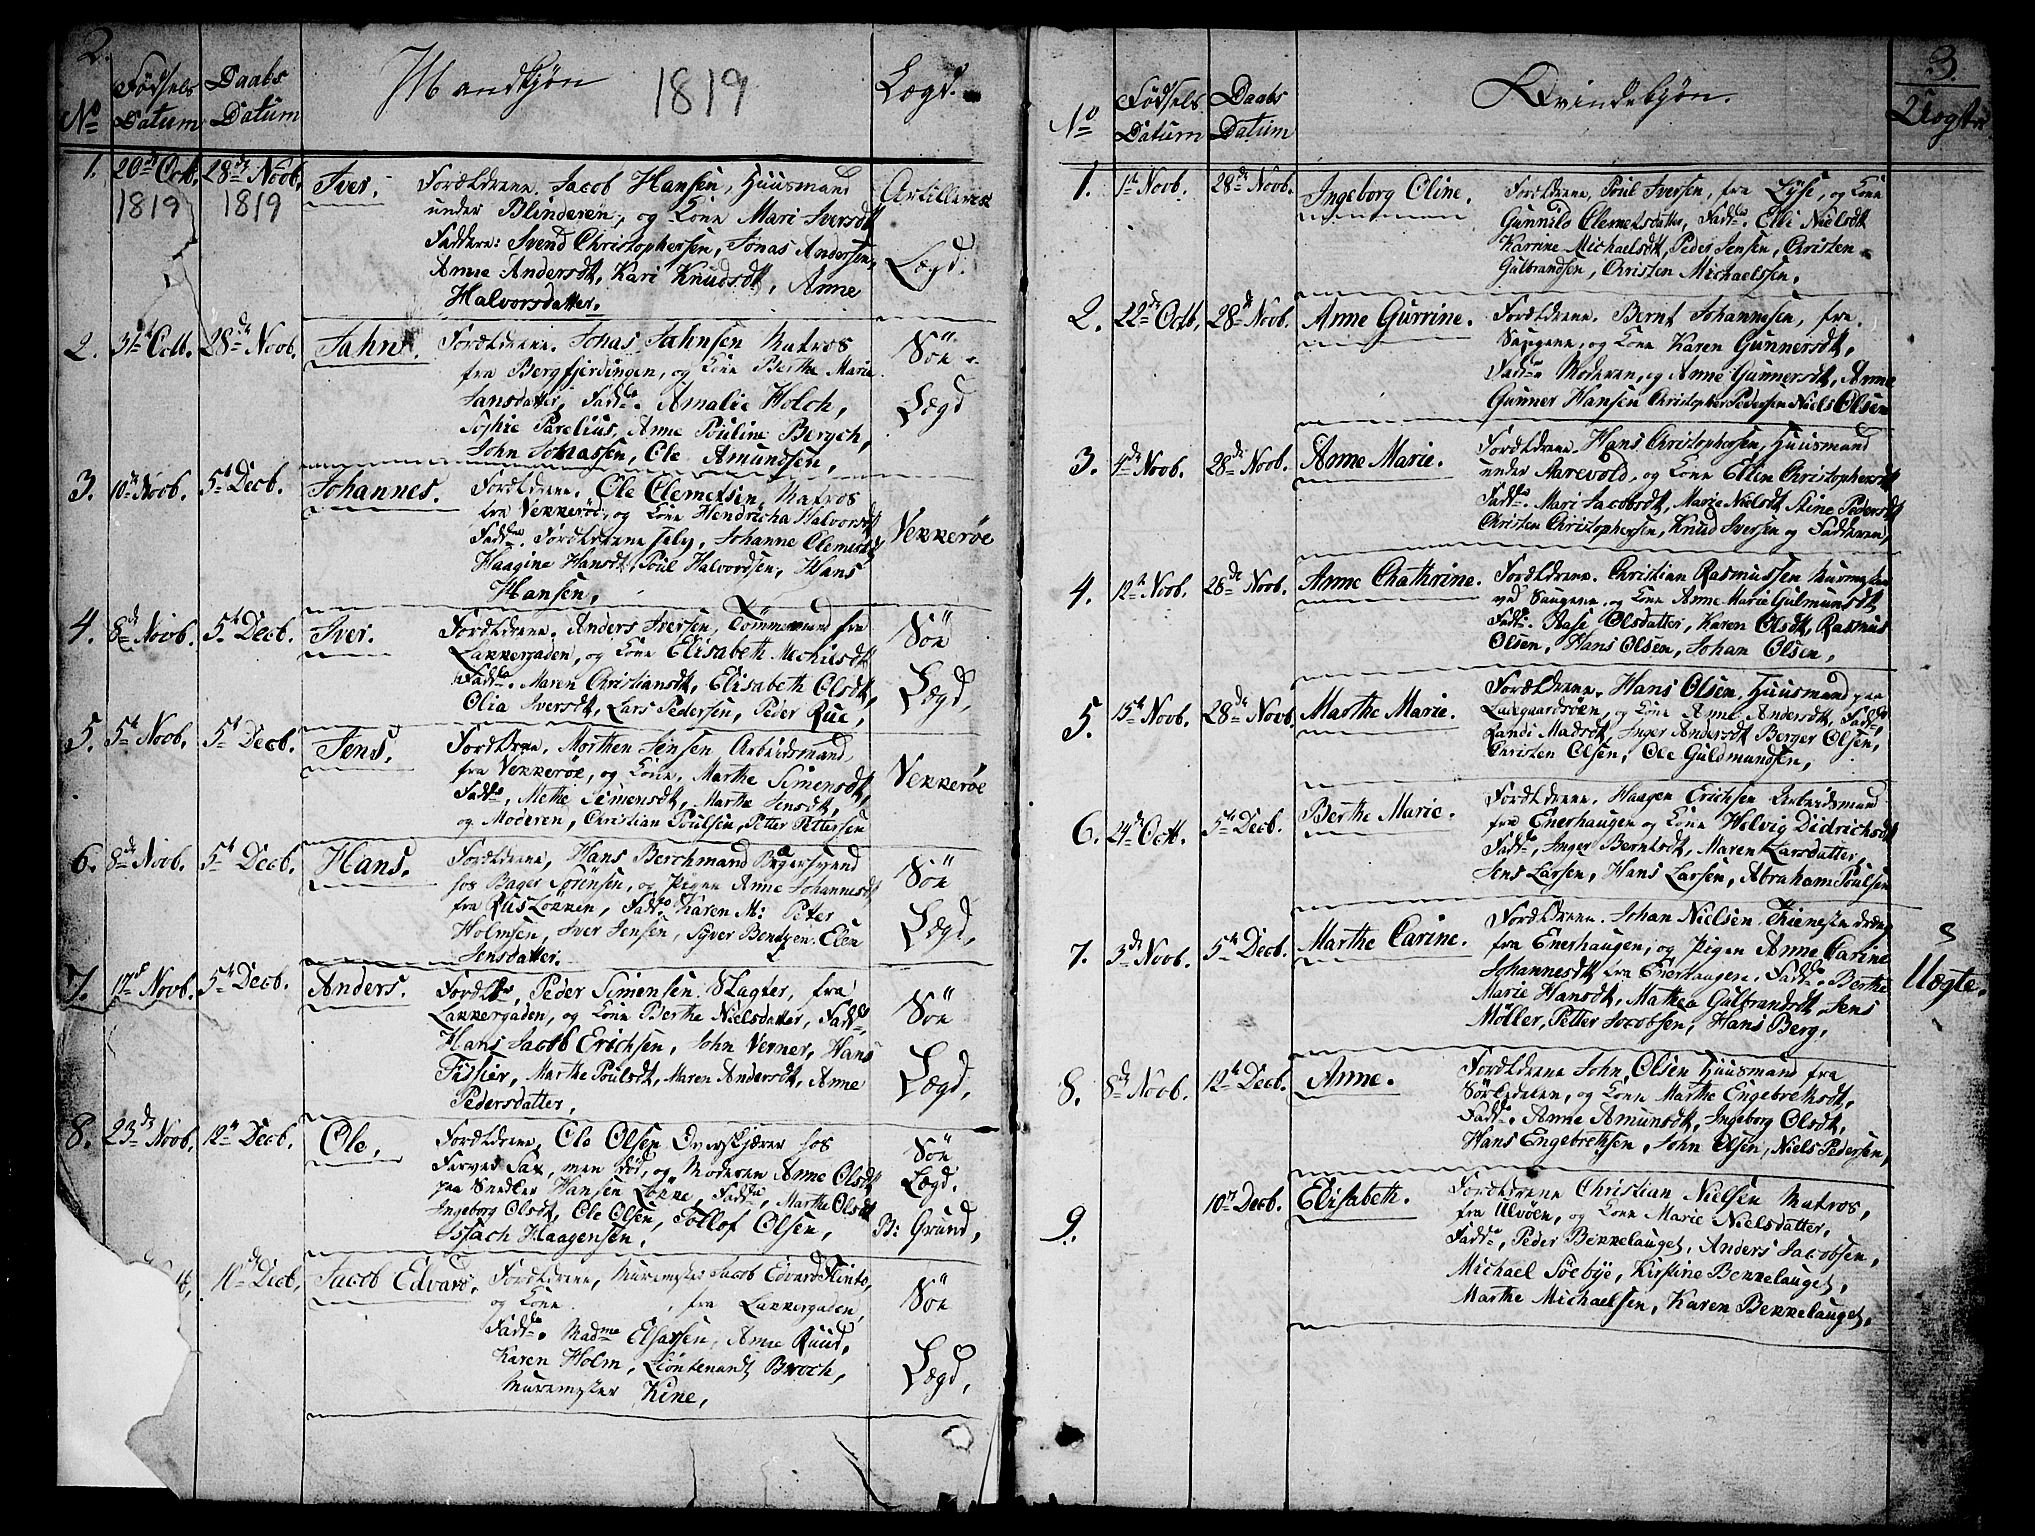 2.
No Fødsels Datum Daabs Datum Mandkjøn 1819 Lægd.
1. 20de Octb. 1819 28de Novb. 1819 Iver. Forældrene. Jacob Hansen, Huusmand Artillerie Lægd.
under Blinderen, og Kone Mari Iversdt
Faddere: Svend Christophersen, Jonas Andersen,
Anne Andersdt, Kari Knudsdt, Anne
Halvorsdatter.
2. 31te Octb. 28de Novb. Jahn. Forældrene. Jonas Jahnsen Matros Söe Lægd
fra Bergfjerdingen, og Kone Berthe Marie
Jansdatter, Fadde. Amalie Holch,
Sophie Parelius, Anne Pouline Bergch,
John Jonassen, Ole Amundsen,
3. 10de Novb. 5te Decb. Johannes. Forældrene. Ole Clemetsen, Matros Vekkerøe
fra Vekkerøe, og Kone Hendricha Halvorsdt
Fadde. Forældrene selv, Johanne Clemetsdt,
Haagine Hansdt, Poul Halvordsen, Hans
Hansen,
4. 8de Novb. 5te Decb. Iver. Forældrene. Anders Iversen, Tömmermand fra Söe Lægd,
Lakkergaden, og Kone Elisabeth Michelsdt
Fadde. Maren Christiansdt, Elisabeth Olsdt,
Olia Iversdt, Lars Pedersen, Peder Rue,
5. 5te Novb. 5te Decb. Jens. Forældrene. Morthen Jensen Arbeidsmand Vekkerøe
fra Vekkerøe, og Kone, Marthe Simensdt,
Fadde, Methe Simensdt, Marthe Jensdt,
og Moderen, Christian Poulsen, Petter Pettersen
6. 8de Novb. 5te Decb. Hans. Forældrene, Hans Berchmand Bagersvend Söe Lægd,
hos Bager Sørensen, og Pigen Anne Johannesdt
fra Rusløkken, Fadde Karen M: Peter
Holmsen, Iver Jensen, Syver Bentzen. Elen
Jensdatter.
7. 17de Novb. 5te Decb. Anders. Forælde, Peder Simensen. Slagter, fra Söe Lægd,
Lakkergaden, og Kone Berthe Nielsdatter, Fadde,
Hans Jacob Erichsen, John Verner, Hans
Fisker, Marthe Poulsdt, Maren Andersdt, Anne
Pedersdatter,
8. 23de Novb. 12te Decb. Ole, Forældrene, Ole Olsen Overskjærer hos Söe Lægd.
Farver Sax, men död, og Moderen Anne Olsdt
paa Snedker Hansen Løkke, Fadde, Marthe Olsdt
Ingeborg Olsdt, Ole Olsen, Tollof Olsen, B: Grund,
Issach Haagensen,
10de Decb, Jacob Edvard, Forældrene, Muurmester Jacob Edvard Flinto, Söe Lægd,
og Kone , fra Lakkergaden,
Fadde. Madme Elsassen, Anne Ruud,
Karen Holm, Lieutenandt Broch,
Muurmester Kine,
3.
No Fødsels Datum Daabs Datum Qvindekjøn. Uægte.
1. 1te Novb. 28de Novb. Ingeborg Oline. Forældrene, Poul Iversen, fra Lyse, og Kone
Gunnild Clemetsdatter, Fadde. Elli Nielsdt
Karine Michaelsdt, Peder Jensen, Christen
Gulbrandsen, Christen Michaelssen.
2. 22de Octb, 28de Novb. Anne Gurrine. Forældrene. Bernt Johannesen, fra
Saugene, og Kone Karen Gunnersdt,
Fadde Moderen, og Anne Gunnersdt, Anne
Gunner Hansen Christopher Pedersen Niels Olsen
3. 4de Novb. 28de Novb. Anne Marie. Forældrene. Hans Christophersen, Huusmand
under Aarevold, og Kone Ellen Christophersdt
Fadde. Mari Jacobsdt, Marie Nielsdt, Stine Pedersdt
Christen Christophersen, Knud Iversen og Fadderen,
4. 12te Novb. 28de Novb. Anne Chathrine. Forældrene. Christian Rasmussen Muurmester
ved Saugene, og Kone Anne Marie Gulmunsdt
Fadde. Aase Olsdatter, Karen Olsdt, Rasmus
Olsen, Hans Olsen, Johan Olsen,
5. 15te Novb. 28de Novb. Marthe Marie. Forældrene. Hans Olsen, Huusmand paa
Langaardsøen, og Kone Anne Andersdt, Fadde
Randi Madsdt, Inger Andersdt Berger Olsen,
Christen Olsen, Ole Guldmundsen,
6. 24de Octt. 5te Decb. Berthe Marie. Forældrene. Haagen Erichsen Arbeidsmand
fra Enerhaugen og Kone Helvig Didrichsdt
Fadde, Inger Berntsdt, Maren Larsdatter,
Jens Larsen, Hans Larsen, Abraham Poulsen
7. 3de Novb. 5te Decb. Marthe Carine. Forældrene. Johan Nielsen Tieneste dreng Uægte.
fra Enerhaugen, og Pigen Anne Carine
Johannesdt fra Enerhaugen, Fadde. Berthe
Marie Hansdt, Mathea Gulbrandsdt, Jens
Møller, Petter Jacobsen, Hans Berg,
8. 8de Novb. 12te Decb. Anne. Forældrene John Olsen Huusmand fra
Sørkedalen, og Kone Marthe Engebrethsdt,
Fadde, Anne Amunsdt, Ingeborg Olsdt,
Hans Engebrethsen, John Olsen, Niels Pedersen,
9. 10de Decb. Elisabeth. Forældrene Christian Nielsen Matros,
fra Ulvöen, og Kone Marie Nielsdatter,
Fadde, Peder Bekkelauget, Anders Jacobsen,
Michael Söebye, Kirstine Bekkelauget,
Marthe Michaelsen, Karen Bekkelauget,